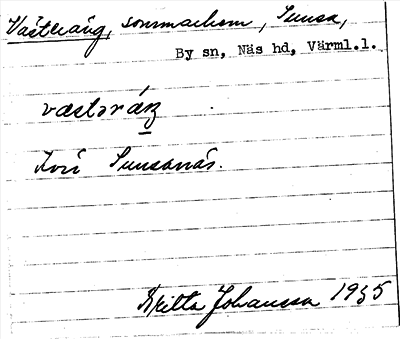 Västeräng, sommarhem, Sunsa,
By sn, Näs hd, Värml.l.
væstəräŋ
Britta Johansson 1935